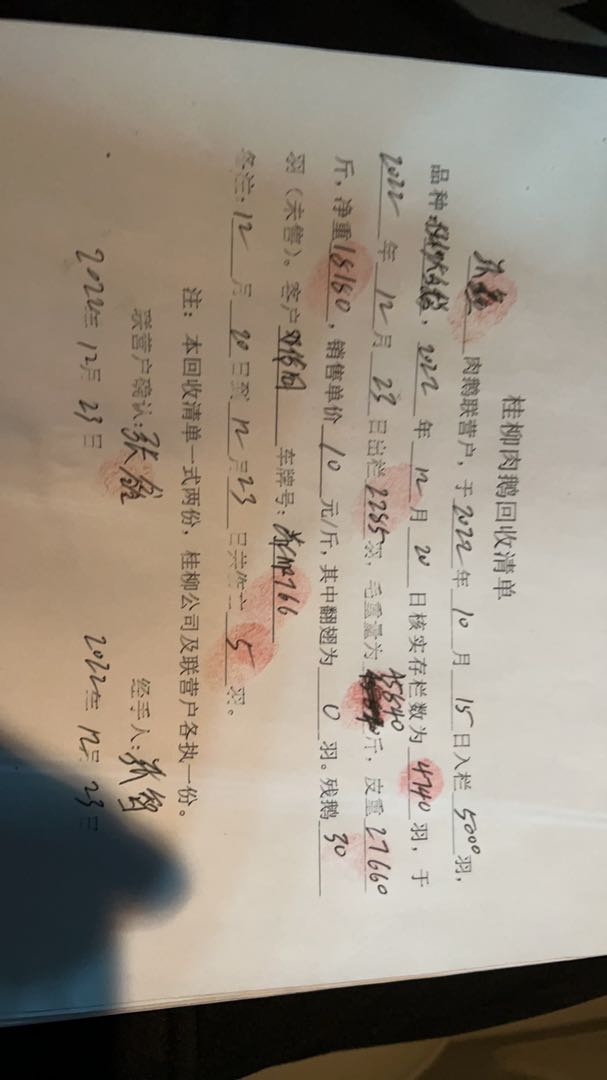 桂柳肉鹅回收清单
张 肉鹅联营户，于2022年10月15日入栏5000羽，
品种：，2022年12月20日核实存栏数为4740羽，于
2022年12月23日出栏2285羽，毛重量为45840斤，皮重27660
斤，净重18180，销售单价10元/斤，其中翻翅为0羽。残鹅30
羽（未售）。客户 车牌号：766
备注：12月20日到12月23日共伤亡5羽。
注：本回收清单一式两份，桂柳公司及联营户各执一份。
联营户确认：张 经手人：张
2022年12月23日 2022年12月23日